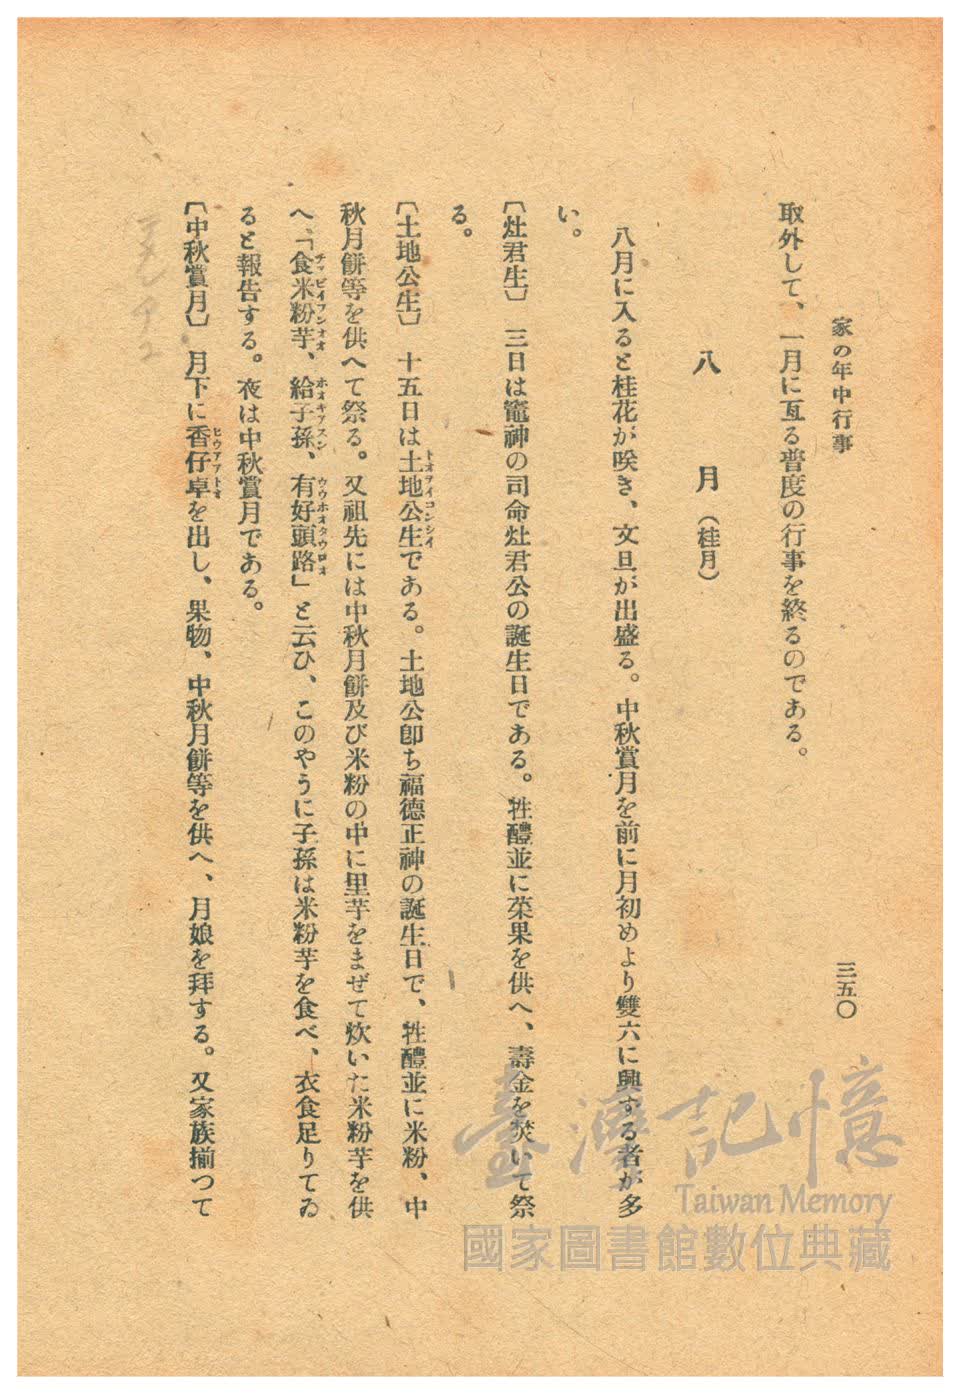 家の年中行事
三五〇
取外して、一月に亙る普度の行事を終るのである。
八月（桂月）
八月に入ると桂花が咲き、文旦が出盛る。中秋賞月を前に月初めより雙六に興する者が多
い。
〔灶君生〕 三日は竈神の司命灶君公の誕生日である。牲醴並に菜果を供へ、壽金を焚いて祭
る。
〔土地公生〕 十五日は土地公生である。土地公卽ち福德正神の誕生日で、牲醴並に米粉、中
トオテイコンシイ
秋月餅等を供へて祭る。又祖先には中秋月餅及び米粉の中に里芋をまぜて炊いた米粉芋を供
へ、「食米粉芋、給子孫、有好頭路」と云ひ、このやうに子孫は米粉芋を食べ、衣食足りてゐ
ると報告する。夜は中秋賞月である。
〔中秋賞月〕 月下に香仔卓を出し、果物、中秋月餅等を供へ、月娘を拜する。又家族揃つて
臺灣記憶
Taiwan Memory
國家圖書館數位典藏